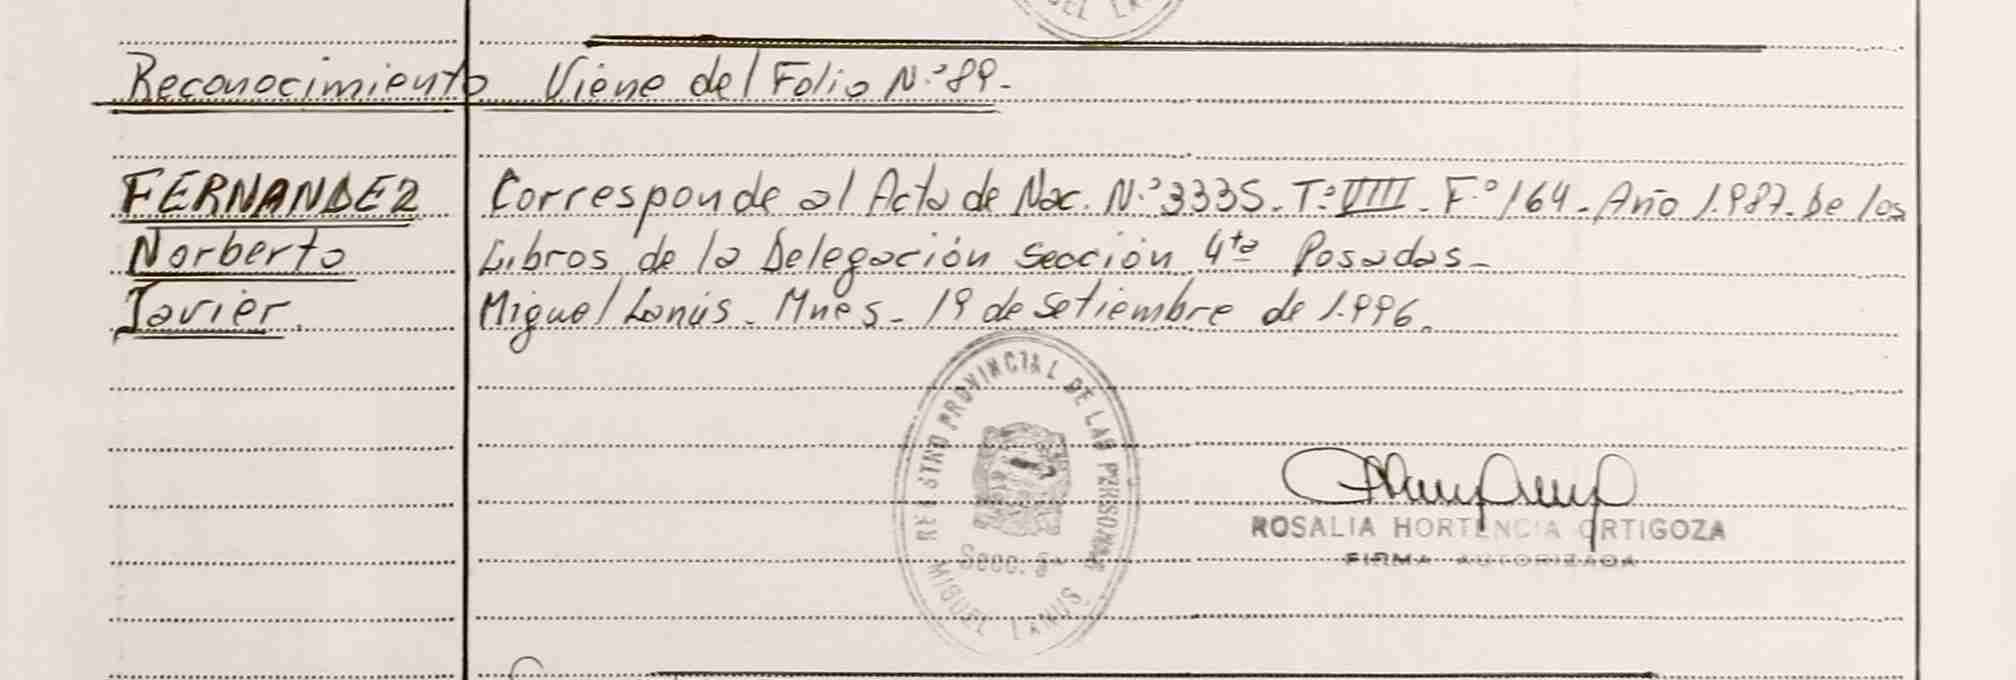 UEL LA
Reconocimiento Viene del Folio N.º 89.-
FERNANDEZ Corresponde al Acta de Nac. N.º 3335. Tº VIII. F.º 164. Año 1.987. De los
Norberto Libros de la Delegación Sección 4ta Posadas.-
Javier. Miguel Lanús. Mnes. 19 de Setiembre de 1.996.
REGISTRO PROVINCIAL DE LAS PERSONAS
Secc. 5ª
MIGUEL LANUS
ROSALIA HORTENCIA ORTIGOZA
FIRMA AUTORIZADA